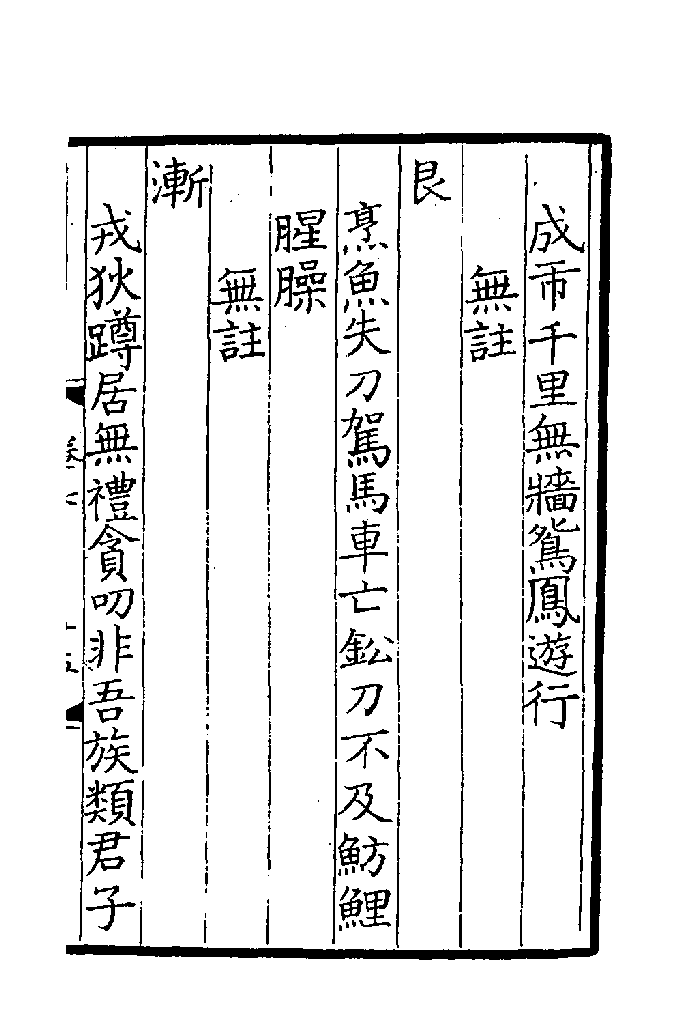 成帀千里無牆鴛鳳遊行
無註
艮
烹魚失刀駕馬車亡鈆刀不及魴鯉
腥臊
無註
漸
戎狄蹲居無禮貪叨非吾族類君子